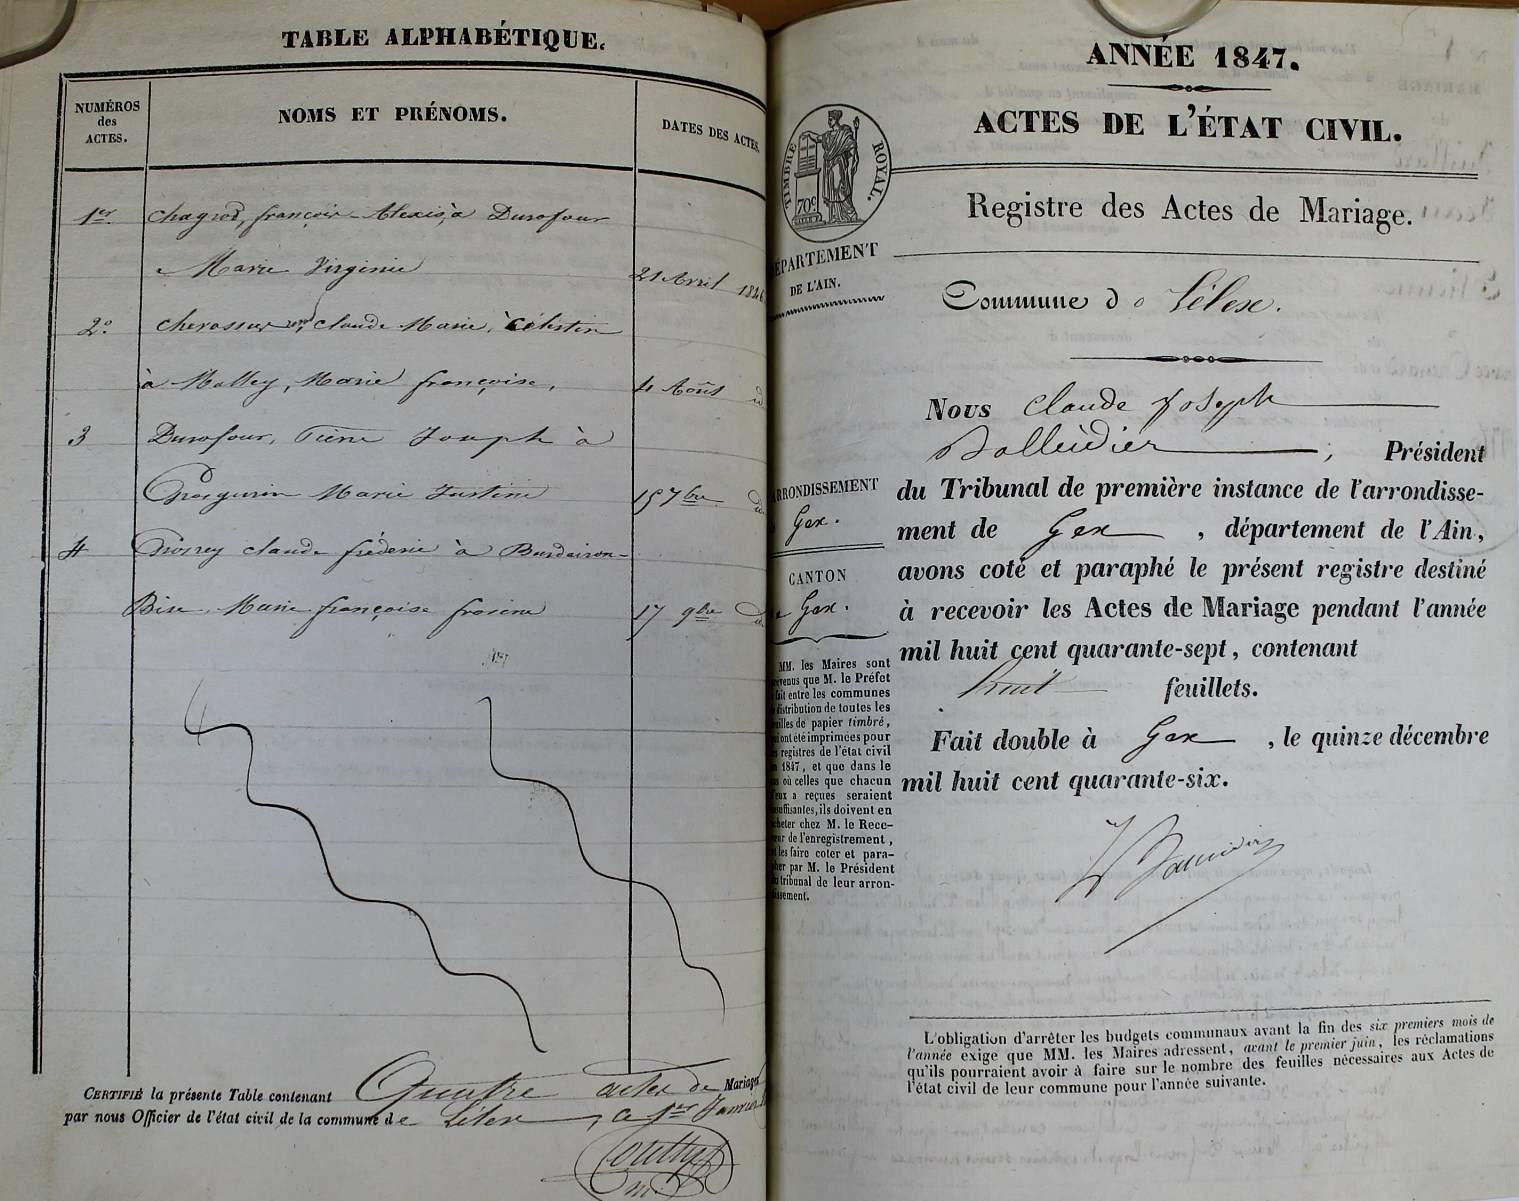 TABLE ALPHABÉTIQUE.
NUMÉROS
des
ACTES.
NOMS ET PRÉNOMS.
DATES DES ACTES.
1er
françois Alexis, à Durafour
Marie Virginie
21 Avril 1846
2°
claude Marie, Célestin
à Malley, Marie françoise,
4 Août id
3
Durafour, Pierre Joseph à
Grosgurin Marie Justine
15 7bre id
4
Grosrey claude frédéric à Burdairon
Bise Marie françoise frosine
17 9bre id
CERTIFIÉ la présente Table contenant Quatre actes de Mariage
par nous Officier de l'état civil de la commune de Lélex, ce 1er Janvier
ANNÉE 1847.
ACTES DE L'ÉTAT CIVIL.
TIMBRE ROYAL.
70c
DÉPARTEMENT
DE L'AIN.
Registre des Actes de Mariage.
Commune de Lélex.
ARRONDISSEMENT
Gex.
CANTON
de Gex.
MM. les Maires sont
prévenus que M. le Préfet
fait entre les communes
distribution de toutes les
feuilles de papier timbré,
qui ont été imprimées pour
les registres de l'état civil
en 1847, et que dans le
cas où celles que chacun
d'eux a reçues seraient
insuffisantes, ils doivent en
acheter chez M. le Rece-
veur de l'enregistrement,
et les faire coter et para-
pher par M. le Président
du tribunal de leur arron-
dissement.
Nous Claude Joseph
Balleidier, Président
du Tribunal de première instance de l'arrondisse-
ment de Gex, département de l'Ain,
avons coté et paraphé le présent registre destiné
à recevoir les Actes de Mariage pendant l'année
mil huit cent quarante-sept, contenant
huit feuillets.
Fait double à Gex, le quinze décembre
mil huit cent quarante-six.
L'obligation d'arrêter les budgets communaux avant la fin des six premiers mois de
l'année exige que MM. les Maires adressent, avant le premier juin, les réclamations
qu'ils pourraient avoir à faire sur le nombre des feuilles nécessaires aux Actes de
l'état civil de leur commune pour l'année suivante.